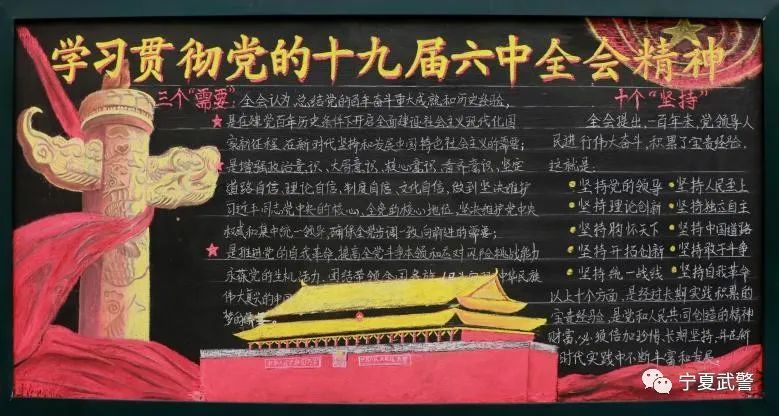 学习贯彻党的十九届六中全会精神
三个“需要”:全会认为,总结党的百年奋斗重大成就和历史经验,
★是在建党百年历史条件下开启全面建设社会主义现代化国
家新征程,在新时代坚持和发展中国特色社会主义的需要;
★是增强政治意识、大局意识、核心意识、看齐意识,坚定
道路自信、理论自信、制度自信、文化自信,做到坚决维护
习近平同志党中央的核心、全党的核心地位,坚决维护党中央
权威和集中统一领导,确保全党步调一致向前进的需要;
★是推进党的自我革命,提高全党斗争本领和应对风险挑战能力
永葆党的生机活力,团结带领全国各族
民族
伟大复兴的中国
梦的
十个“坚持”
全会提出,一百年来,党领导人
民进行伟大奋斗,积累了宝贵经验,
这就是:
●坚持党的领导 ●坚持人民至上
●坚持理论创新 ●坚持独立自主
●坚持胸怀天下 ●坚持中国道路
●坚持开拓创新 ●坚持敢于斗争
●坚持统一战线 ●坚持自我革命
以上十个方面,是经过长期实践积累的
宝贵经验,是党和人民共同创造的精神
财富,必须倍加珍惜、长期坚持,并在新
时代实践中不断丰富和发展。
宁夏武警